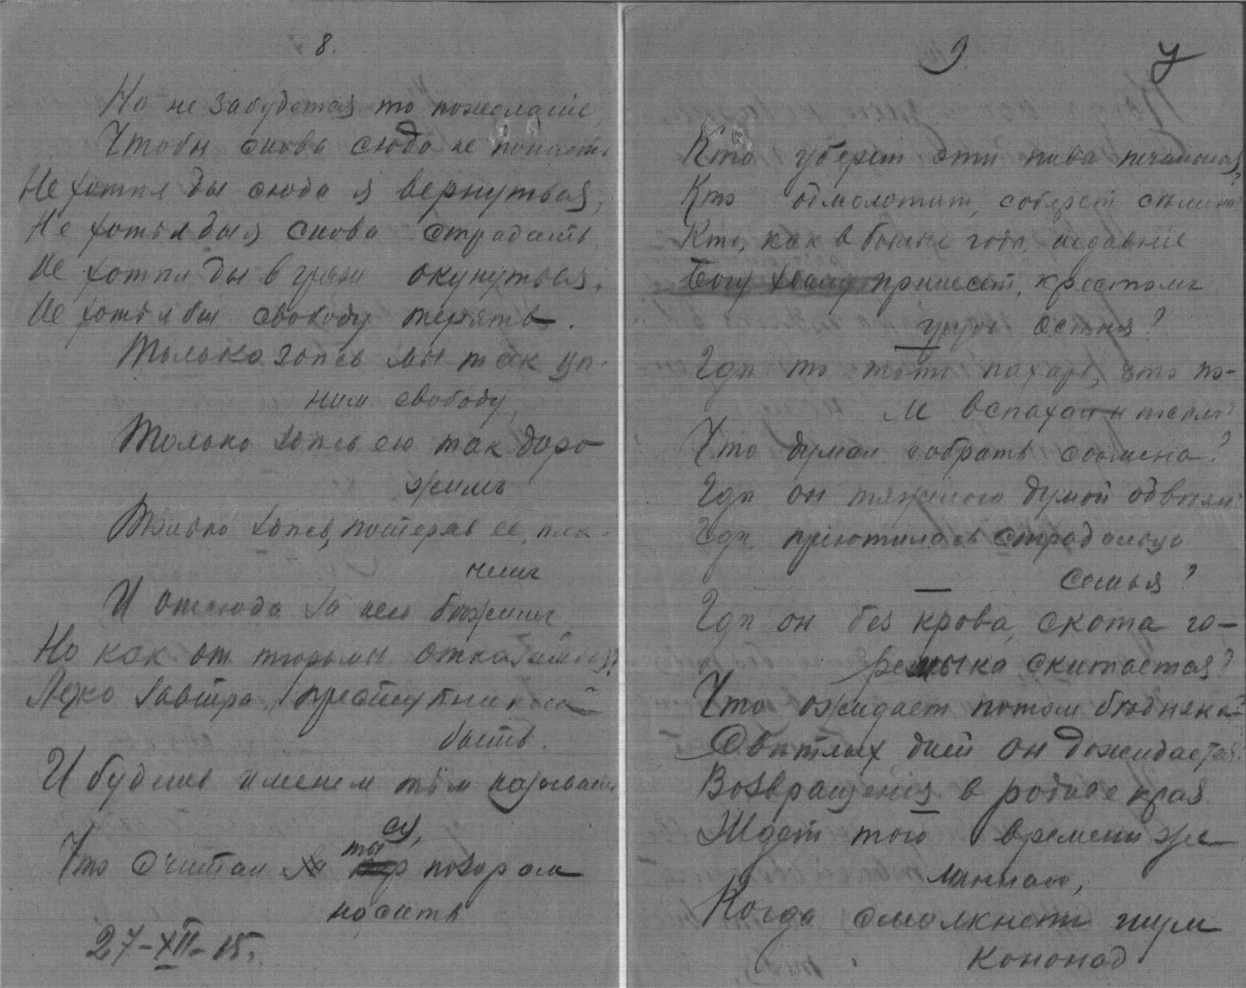 8.
Но не забудется то пожеланіе
Чтобы снова сюда не попасть
Не хотѣл бы сюда я вернуться,
Не хотѣл бы я снова страдать
Не хотѣл бы в грязи окунуться,
Не хотѣл бы свободу терять.
Только здѣсь мы так цѣ-
ним свободу,
Только здѣсь ею так доро-
жимъ
Только здѣсь, потеряв ее, пла-
чем
И отсюда за нею бѣжим
Но как от тюрьмы отказаться?
Легко завтра преступником
быть.
И будешь именем тѣм называть
ся,
Что считал ты позором
носить
27-XII-15.
9
Кто уберет эти нивы печальныя,
Кто обмолотит, соберет сѣмена
Кто, как в былые года, недавніе
Богу хвалу принесет, крестом
грудь осѣня?
Гдѣ то тот пахарь, что по-
ле вспахал
Что думал собрать сѣмена?
Гдѣ он тяжелою думой
Гдѣ пріютилась страдальца
семья?
Гдѣ он без крова, скота го-
ремыка скитается?
Что ожидает потом бѣдняка?
Свѣтлых дней он дожидается
Возвращенія в родные края
Ждет того времени же-
ланнаго,
Когда смолкнет шум
кононад